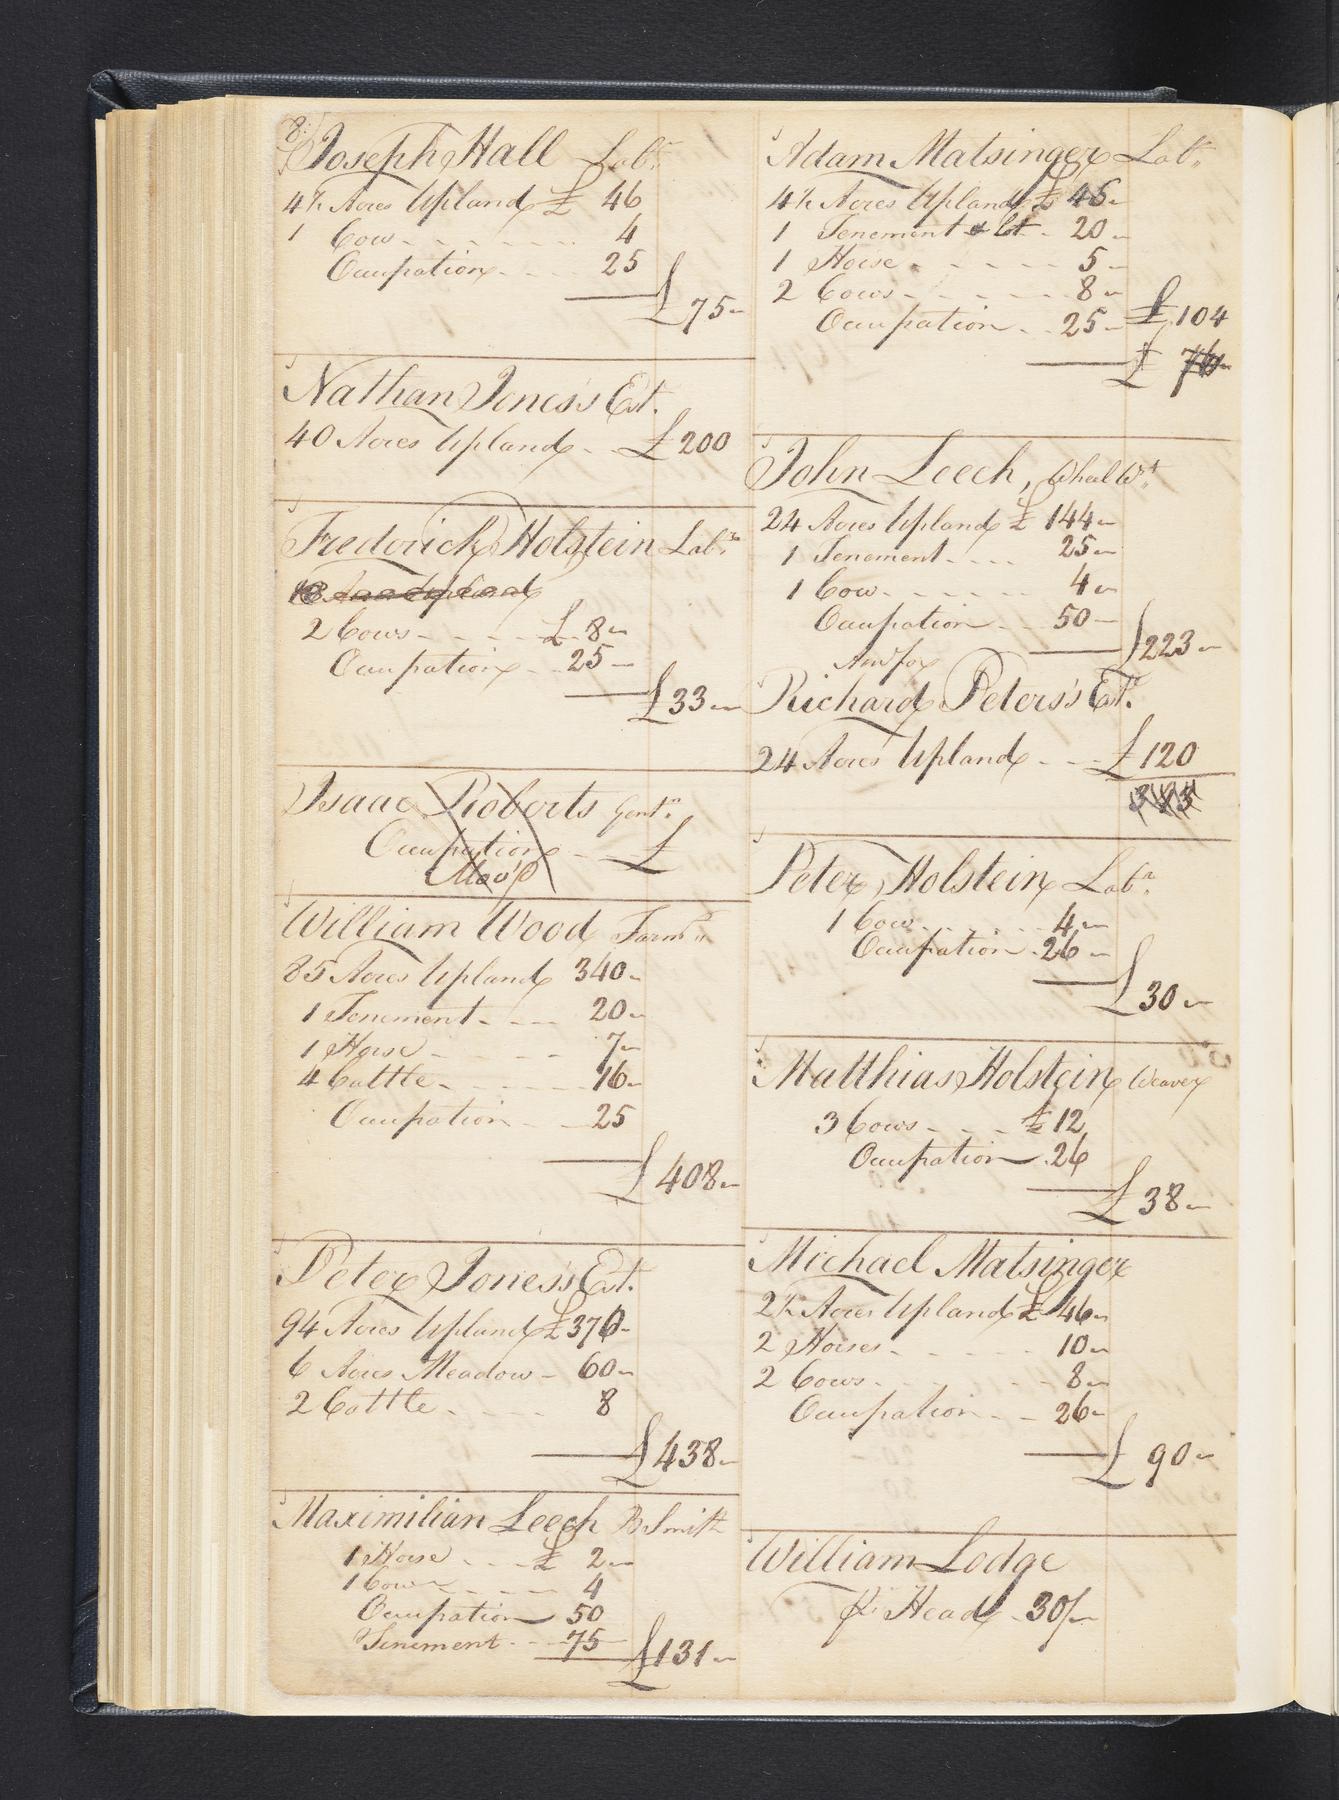 8
Joseph Hall Labr.
4½ Acres Upland £ 46
1 Cow 4
Occupation 25
£75
Nathan Jones's Est.
40 Acres Upland £200
Frederick Holstein Labr.
2 Cows £ 8
Occupation 25
£33
Isaac Roberts Gentn.
Occupation £
William Wood Farmr.
85 Acres Upland 340
1 Tenement 20
1 Horse 7
4 Cattle 16
Occupation 25
£408
Peter Jones's Est.
94 Acres Upland £370
6 Acres Meadow 60
2 Cattle 8
£438
Maximilian Leech B Smith
1 Horse £ 2
1 Cow 4
Occupation 50
Tenement 75
£131
Adam Matsinger Labr.
4½ Acres Upland £ 46
1 Tenement & Lt 20
1 Horse 5
2 Cows 8
Occupation 25 £104
£
John Leech, Wheel Wt.
24 Acres Upland £ 144
1 Tenement 25
1 Cow 4
Occupation 50
£223
Richard Peters's Est.
24 Acres Upland £120
Peter Holstein Labr.
1 Cow 4
Occupation 26
£30
Matthias Holstein Weaver
3 Cows £ 12
Occupation 26
£38
Michael Matsinger
2½ Acres Upland £ 46
2 Horses 10
2 Cows 8
Occupation 26
£ 90
William Lodge
Pr. Head 30/